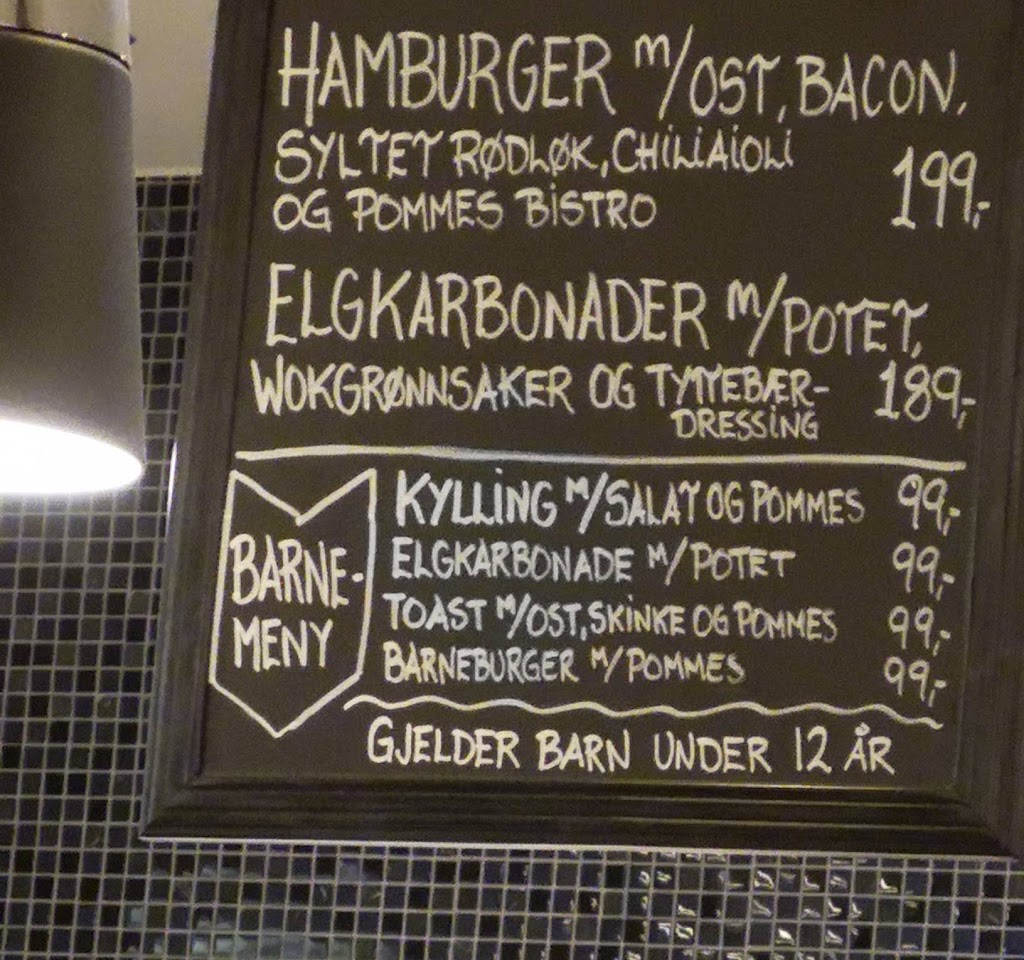 HAMBURGER m/OST, BACON,
SYLTET RØDLØK, CHILIAIOLI
OG POMMES BISTRO 199,-
ELGKARBONADER m/POTET,
WOKGRØNNSAKER OG TYTTEBÆR- 189,-
DRESSING
BARNE-
MENY
KYLLING M/SALAT OG POMMES 99,-
ELGKARBONADE M/POTET 99,-
TOAST M/OST, SKINKE OG POMMES 99,-
BARNEBURGER M/POMMES 99,-
GJELDER BARN UNDER 12 ÅR